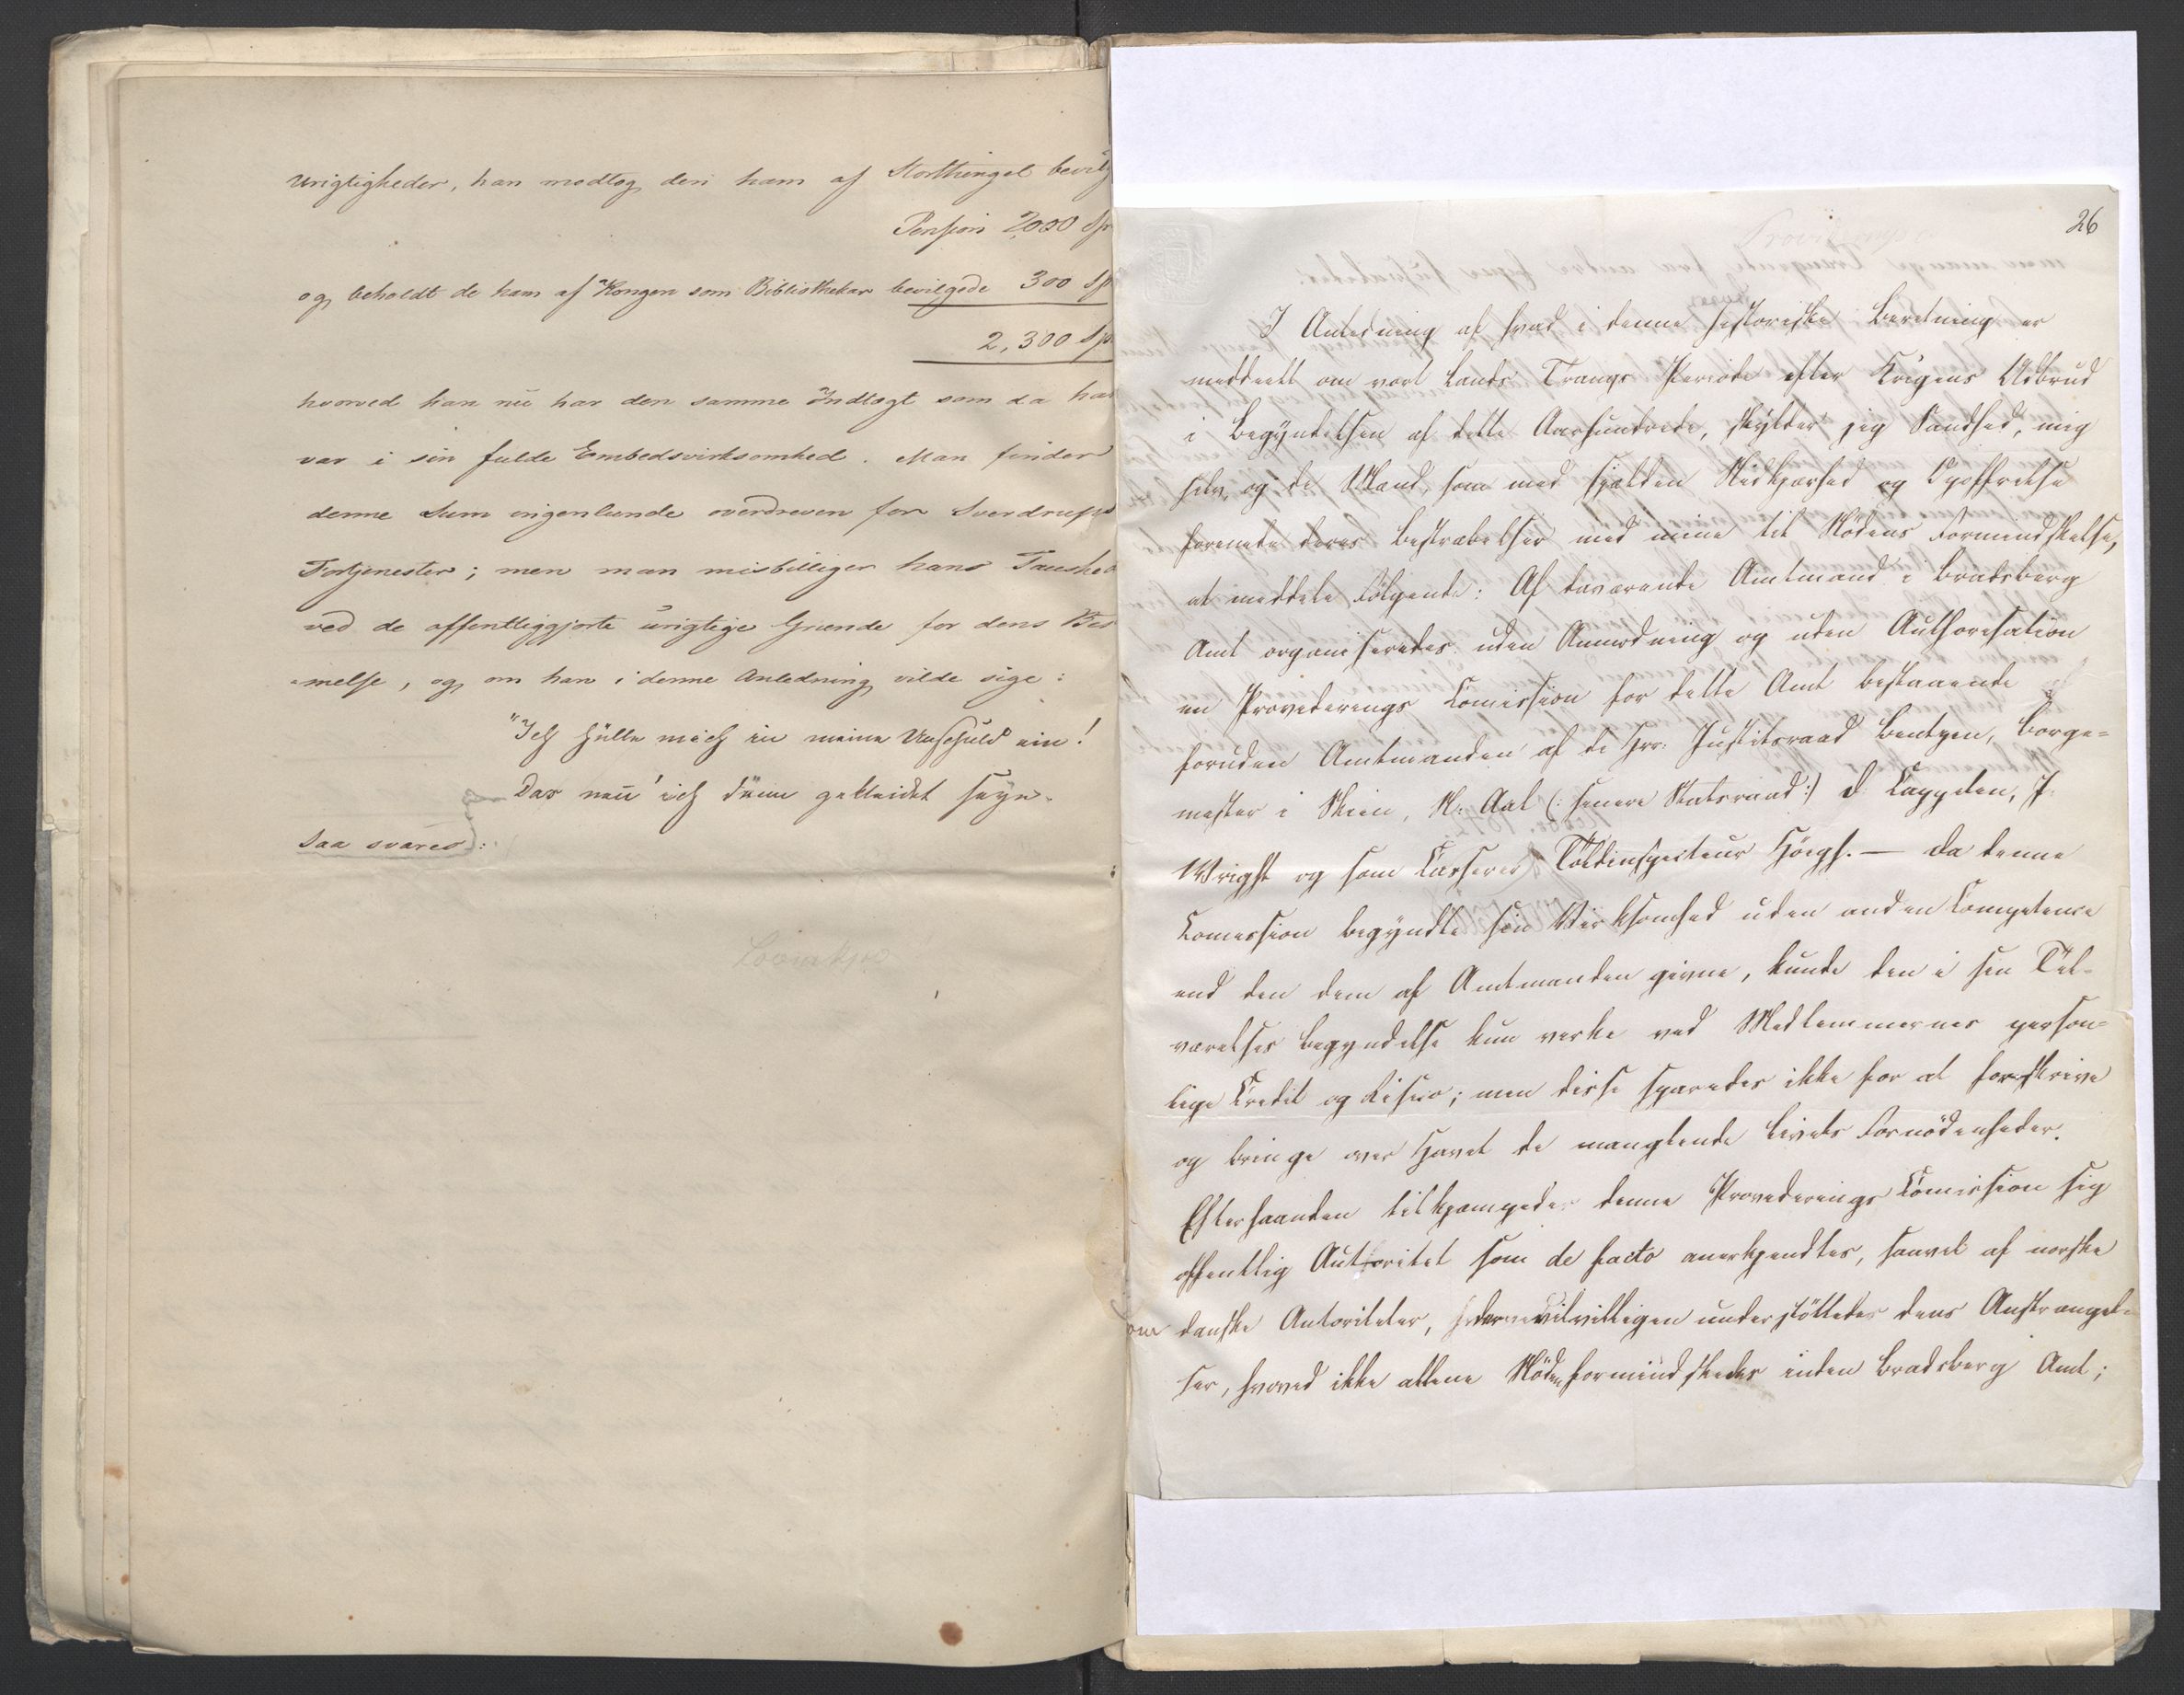 urigtigheder, han modtog den ham af Storthinget bevilg
Pension 2000 Sp
og beholdt de ham af Kongen som Bibliothekar bevilgede 300 Sp
2,300 Sp
hvorved han nu har den samme Indtægt som da han
var i sin fulde Embedsvirksomhed. Man finder
denne Sum ingenlunde overdreven for Sverdrups
Fortjenester; men man misbilliger hans Taushed
ved de offentliggjorte urigtige Grunde for dens Be
melse, og om han i denne Anledning vilde sige:
"Ich hülle mich in meine Unschuld ein!
saa svares:
26
I Anledning af hvad i denne historiske Beretning er
meddeelt om vort Lands Trangs Periode efter Krigens Udbrud
i Begyndelsen af dette Aarhundrede, skylder jeg Sandhed, mig
selv, og de Mænd, som med sjelden Nidkjærhed og Opoffrelse
forenede deres Bestræbelser med mine til Nödens Formindskelse,
at meddele Fölgende: Af daværende Amtmand i Bradsberg
Amt organiseredes uden Anmodning og uden Authorisation
en Provederings Comission for dette Amt bestaaende
foruden Amtmanden af de Hrr: Justitsraad Bentzen, Borge=
mester i Skien, N. Aal (: senere Statsraad :) D. Cappelen, J.
Wright og som Casserer Toldinspecteur Höegh. — Da denne
Comission begyndte sin Virksomhed uden anden Competence
end den dem af Amtmanden givne, kunde den i sin Til=
værelses Begyndelse kun verke ved Medlemmernes person=
lige Credit og Risico; men disse sparedes ikke for at forskrive
og bringe over Havet de manglende Livets Fornödenheder.
Efterhaanden tilkjæmpede denne Provederings Comission sig
offentlig Autoritet som de facto anerkjendtes, saavel af norske
som danske Autoriteter, der velvilligen understöttedes dens Anstrængel=
ser, hvorved ikke allene Nöden formindskedes inden Bradsberg Amt;